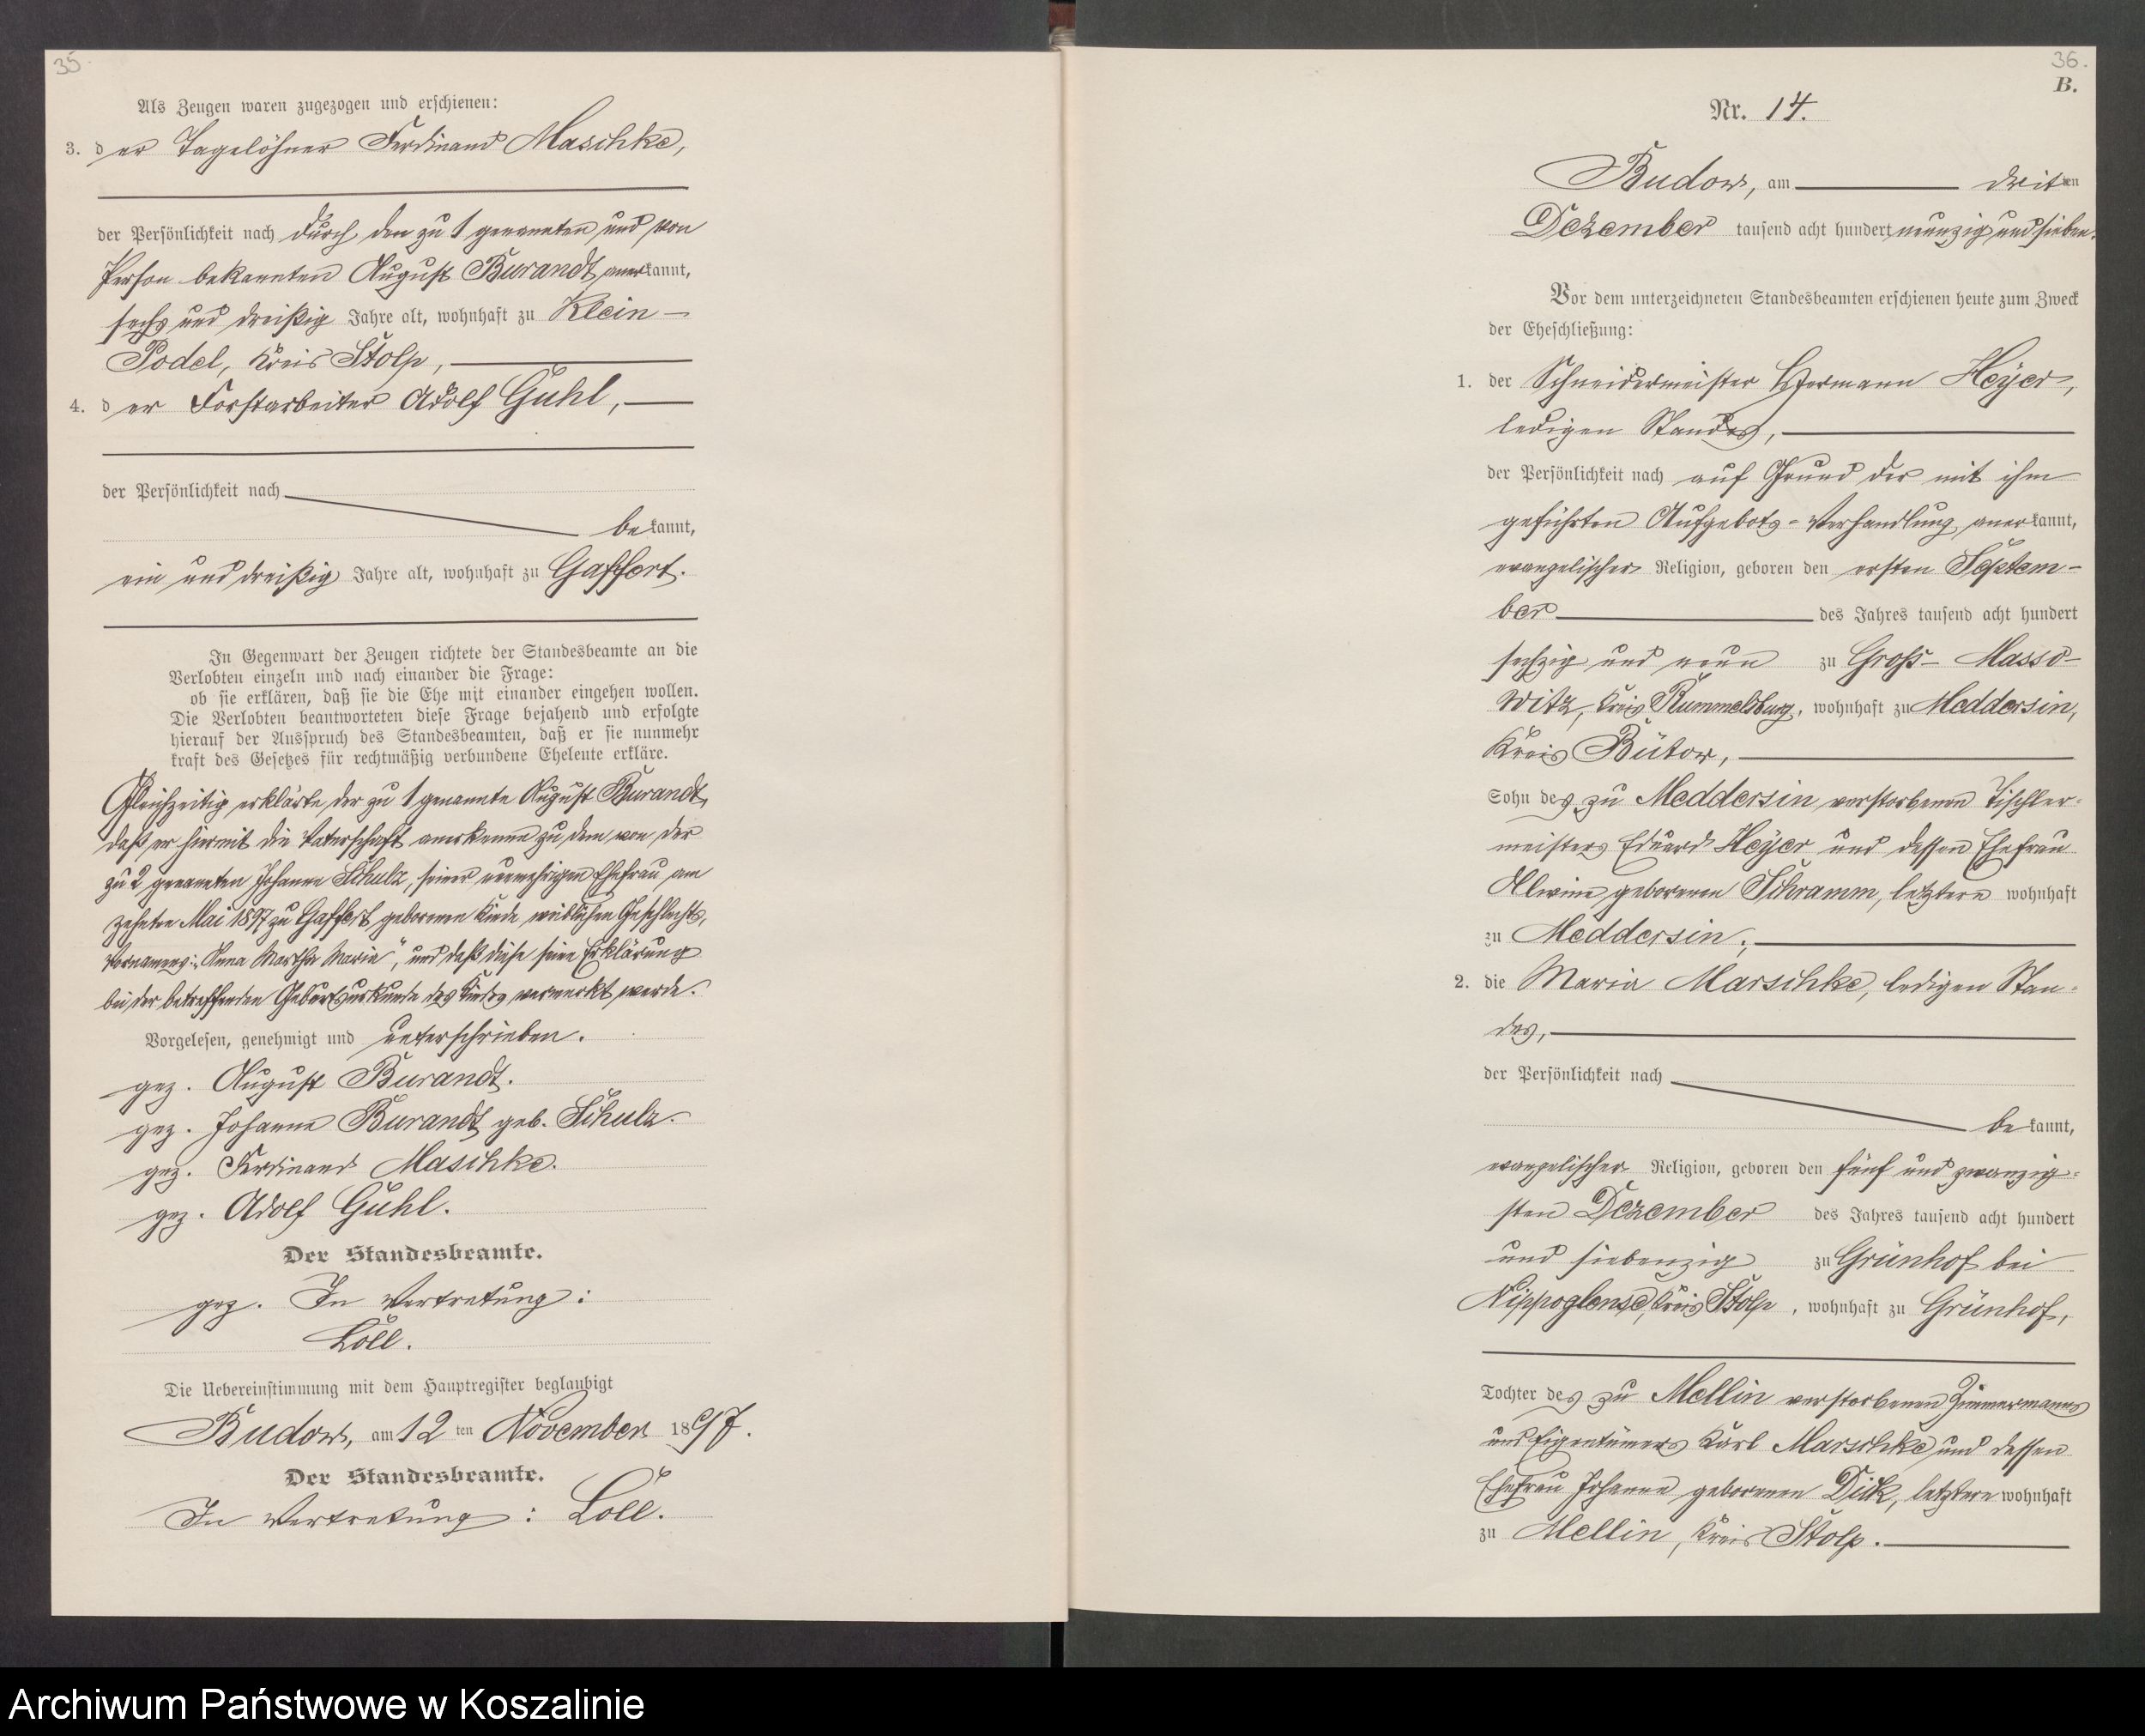 35.
Als Zeugen waren zugezogen und erschienen:
3. der Tagelöhner Ferdinand Maschke,
der Persönlichkeit nach durch den zu 1 genannten und von
Person bekannten August Burandt anerkannt,
sechs und dreißig Jahre alt, wohnhaft zu Klein-
Podel, Kreis Stolp,
4. der Forstarbeiter Adolf Guhl,
der Persönlichkeit nach
bekannt,
ein und dreißig Jahre alt, wohnhaft zu Gaffert.
In Gegenwart der Zeugen richtete der Standesbeamte an die
Verlobten einzeln und nach einander die Frage:
ob sie erklären, daß sie die Ehe mit einander eingehen wollen.
Die Verlobten beantworteten diese Frage bejahend und erfolgte
hierauf der Ausspruch des Standesbeamten, daß er sie nunmehr
kraft des Gesetzes für rechtmäßig verbundene Eheleute erkläre.
Gleichzeitig erklärte der zu 1 genannte August Burandt,
daß er hiermit die Vaterschaft anerkenne zu dem von der
zu 2 genannten Johanne Schulz, seiner nunmehrigen Ehefrau am
zehnten Mai 1897 zu Gaffert geborenen Kinde weiblichen Geschlechts,
Vornamens: „Anna Martha Maria“, und daß diese seine Erklärung
bei der betreffenden Geburtsurkunde des Kindes vermerkt werde.
Vorgelesen, genehmigt und unterschrieben.
gez. August Burandt.
gez. Johanne Burandt geb. Schulz.
gez. Ferdinand Maschke.
gez. Adolf Guhl.
Der Standesbeamte.
gez. In Vertretung:
Loll.
Die Uebereinstimmung mit dem Hauptregister beglaubigt
Budow, am 12 ten November 1897.
Der Standesbeamte.
In Vertretung: Loll.
36.
B.
Nr. 14.
Budow, am dritten
Dezember tausend acht hundert neunzig und sieben.
Vor dem unterzeichneten Standesbeamten erschienen heute zum Zweck
der Eheschließung:
1. der Schneidermeister Hermann Heyer,
ledigen Standes,
der Persönlichkeit nach auf Grund der mit ihm
geführten Aufgebots-Verhandlung anerkannt,
evangelischer Religion, geboren den ersten Septem-
ber des Jahres tausend acht hundert
sechzig und neun zu Groß- Masso-
witz, Kreis Rummelsburg, wohnhaft zu Meddersin,
Kreis Bütow,
Sohn des zu Meddersin verstorbenen Tischler-
meisters Eduard Heyer und dessen Ehefrau
Alwine geborenen Schramm, letztere wohnhaft
zu Meddersin;
2. die Maria Marschke, ledigen Stan-
des,
der Persönlichkeit nach
bekannt,
evangelischer Religion, geboren den fünf und zwanzig-
sten Dezember des Jahres tausend acht hundert
und siebenzig zu Grünhof bei
Nippoglense, Kreis Stolp, wohnhaft zu Grünhof,
Tochter des zu Mellin verstorbenen Zimmermanns
und Eigentümers Karl Marschke und dessen
Ehefrau Johanne geborenen Dick, letztere wohnhaft
zu Mellin, Kreis Stolp.
Archiwum Państwowe w Koszalinie